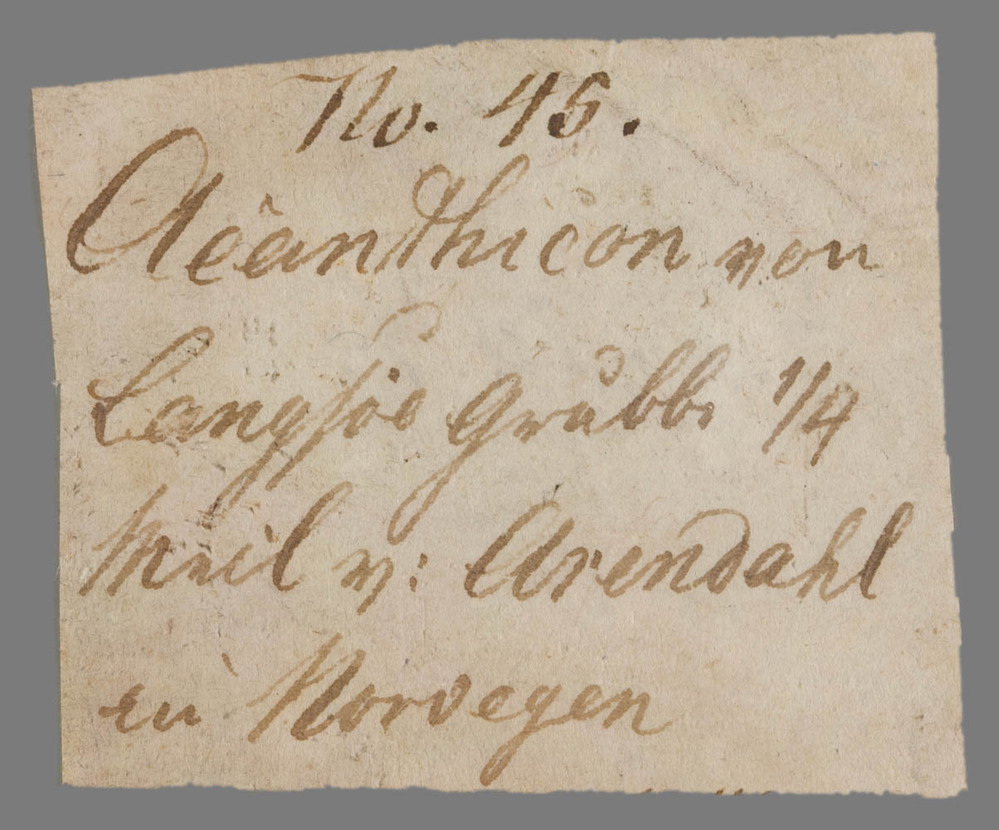 No. 45.
Acanthicon von
Langsöe Grube 1/4
Meil v: Arendahl
in Norvegen